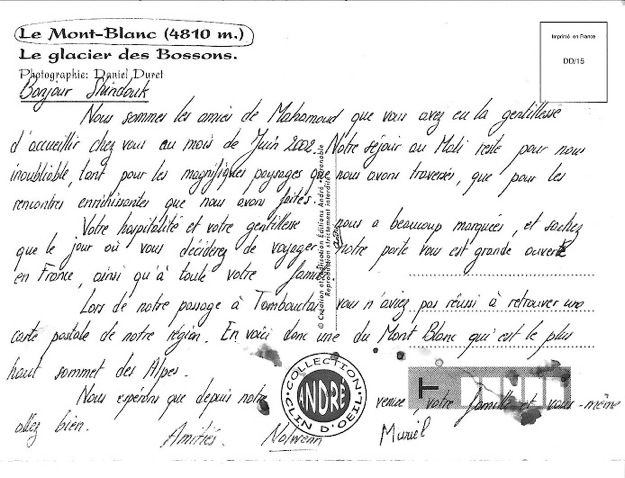 Le Mont-Blanc (4810 m.)
Le glacier des Bossons.
Photographie: Daniel Duret
Imprimé en France
DD/15
Bonjour Shindouk
Nous sommes les amies de Mahamoud que vous avez eu la gentillesse
d'accueillir chez vous au mois de Juin 2002. Notre séjour au Mali reste pour nous
inoubliable, tant pour les magnifiques paysages que nous avons traversés, que pour les
rencontres enrichissantes que nous avons faites.
Votre hospitalité et votre gentillesse nous a beaucoup marquées, et sachez
que le jour où vous déciderez de voyager notre porte vous est grande ouverte
en France, ainsi qu'à toute votre famille.
Lors de notre passage à Tombouctou vous n'aviez pas réussi à retrouver une
carte postale de notre région. En voici donc une du Mont Blanc qui est le plus
haut sommet des Alpes.
Nous espérons que depuis notre venue, votre famille et vous-même
allez bien.
Amitiés. Nolwenn Muriel
© Création et Réalisation Editions André
Reproduction strictement interdite
COLLECTION
ANDRÉ
CLIN D'OEIL
T